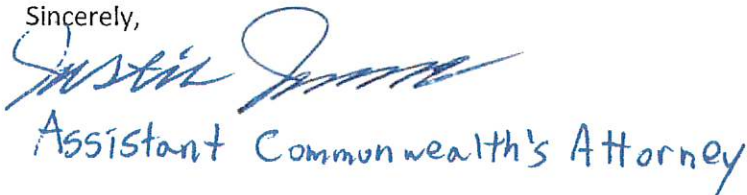 Sincerely,
Justin
Assistant Commonwealth's Attorney